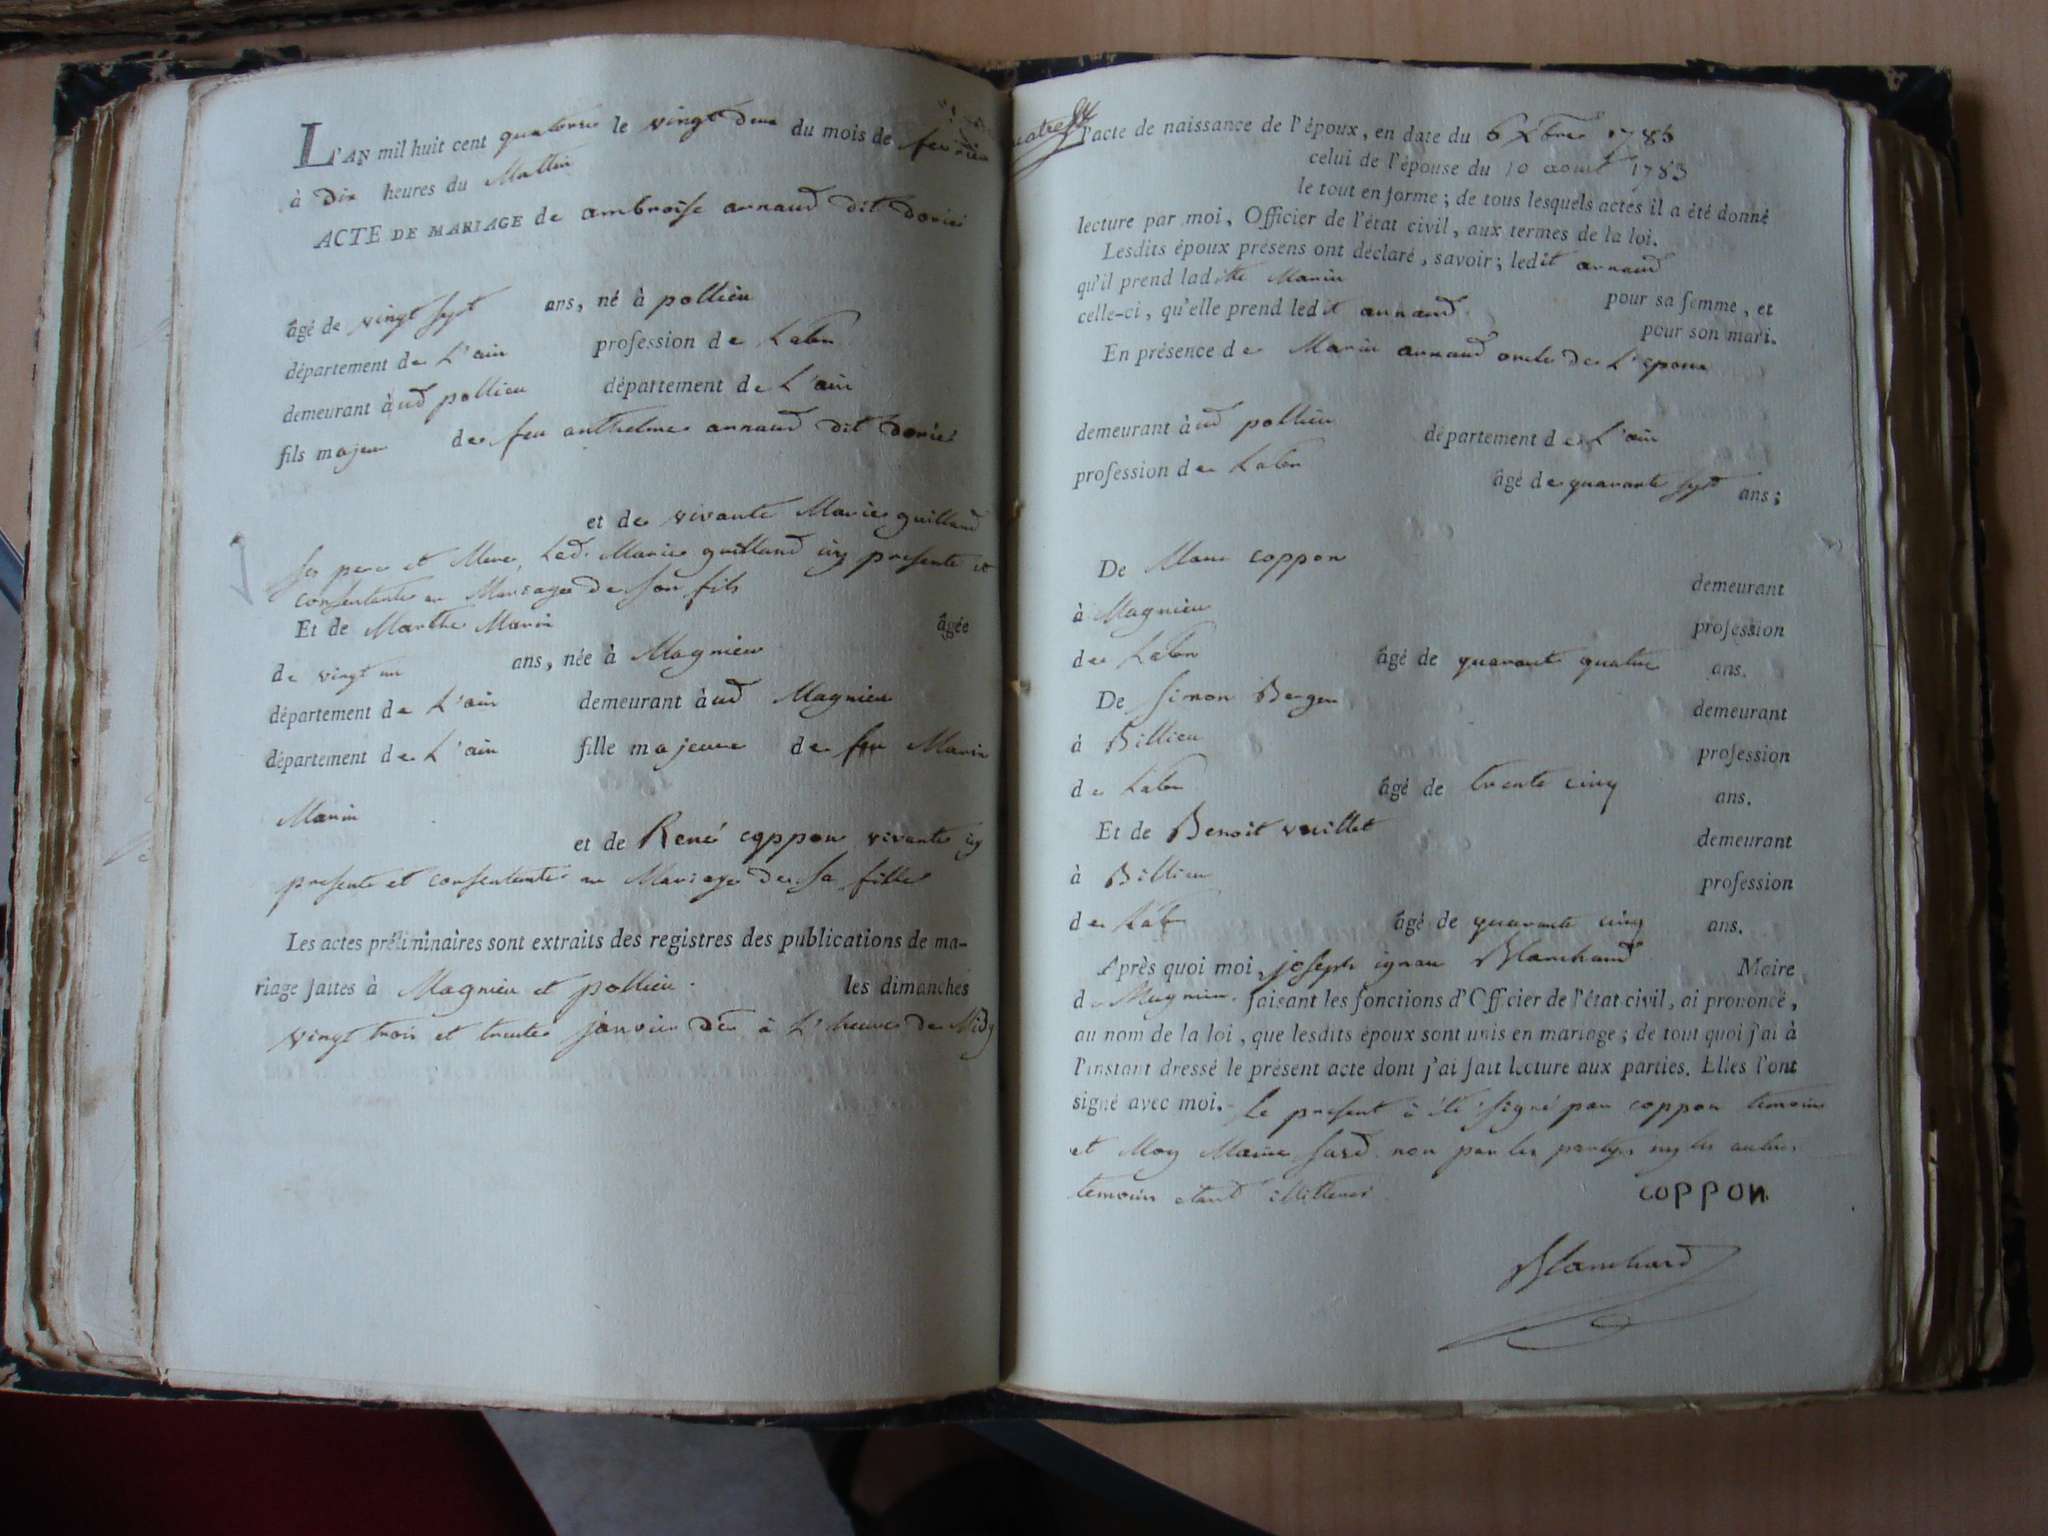 L'AN mil huit cent quatorze le vingt deux du mois de fevrier
à dix heures du Mattin
ACTE DE MARIAGE de ambroise arnaud dit dorier
âgé de vingt sept ans, né à pollieu
département de L'ain profession de Labr
demeurant à ud pollieu département de L'ain
fils majeur de feu anthelme arnaud dit dorier
et de vivante Marie guilland
ses pere et Mere, Lad. Marie guilland icy presente et
consentante au Mariage de son fils
Et de Marthe Marin âgée
de vingt un ans, née à Magnieu
département de L'ain demeurant à ud Magnieu
département de L'ain fille majeure de feu Marin
Marin
et de René coppon vivante icy
presente et consentante au Mariage de sa fille
Les actes préliminaires sont extraits des registres des publications de ma-
riage faites à Magnieu et pollieu. les dimanches
vingt trois et trente janvier dr à L'heure de Midy
l'acte de naissance de l'époux, en date du 6 Xbre
celui de l'épouse du 10 aoust
le tout en forme; de tous lesquels actes il a été donné
lecture par moi, Officier de l'état civil, aux termes de la loi.
Lesdits époux présens ont déclaré, savoir; ledit arnaud
qu'il prend laditte Marin pour sa femme, et
celle-ci, qu'elle prend ledit arnaud pour son mari.
En présence de Marin arnaud oncle de L'epoux
demeurant à ud pollieu département de L'ain
profession de Labr âgé de quarante sept ans;
De Marc coppon demeurant
à Magnieu profession
de Labr âgé de quarante quatre ans.
De Simon Berger demeurant
à Billieu profession
de Labr âgé de trente cinq ans.
Et de Benoit vuillet demeurant
à Billieu profession
de Lab âgé de quarante cinq ans.
Après quoi moi, joseph ignace Blanchard Maire
de Magnieu faisant les fonctions d'Officier de l'état civil, ai prononcé,
au nom de la loi, que lesdits époux sont unis en mariage; de tout quoi j'ai à
l'instant dressé le présent acte dont j'ai fait lecture aux parties. Elles l'ont
signé avec moi. Le present à été signé par coppon temoin
et Moy Maire susd. non par les partyes ny les autres
temoins etant illitteres
coppon
Blanchard